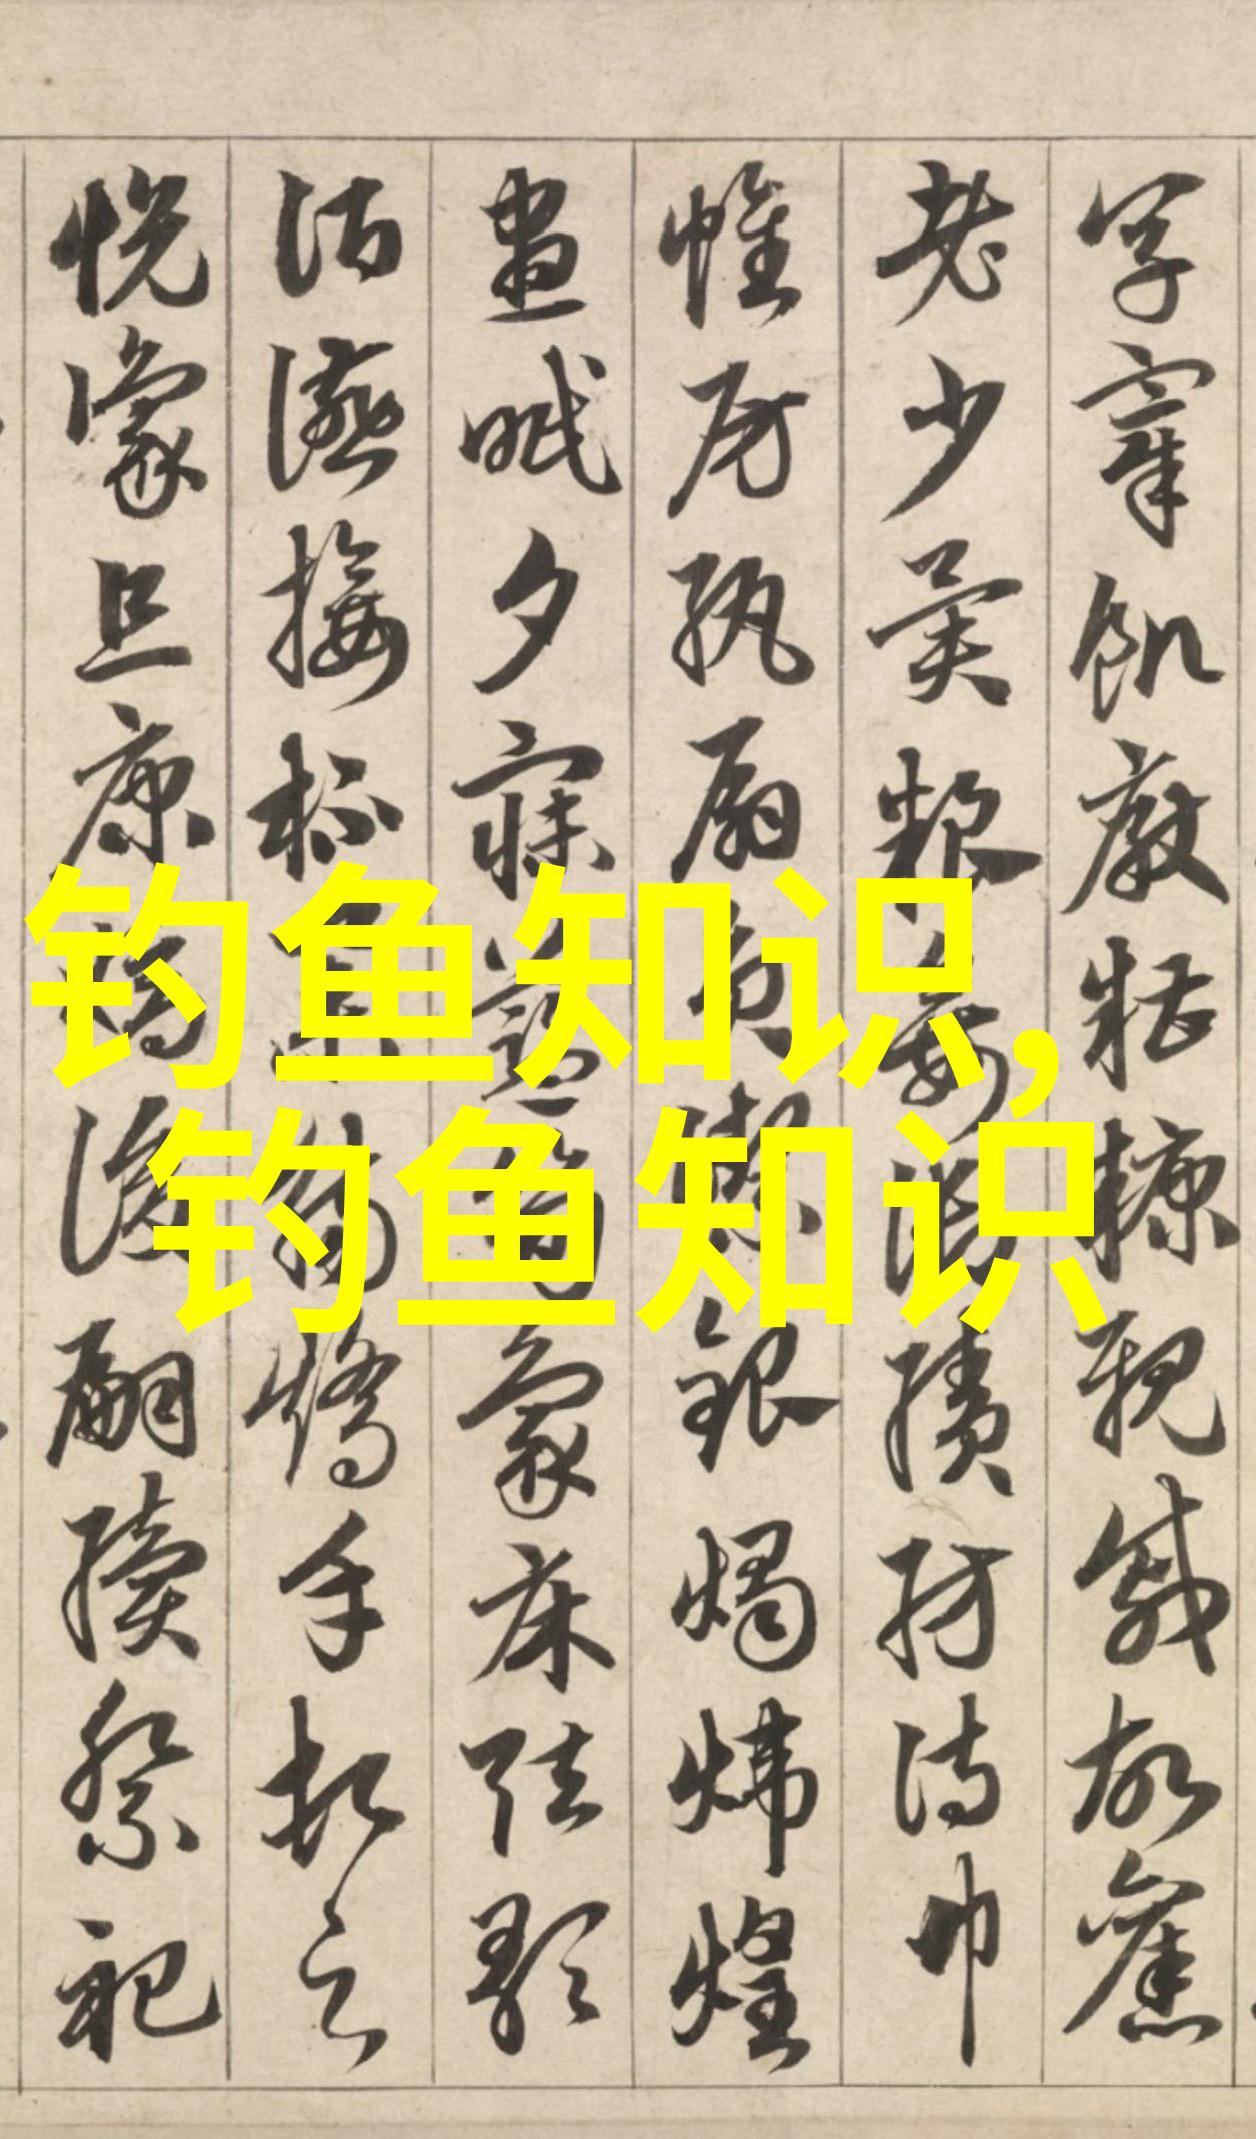 钓鱼知识,
钓鱼知识
亨宰飢厭糟糠親戚故舊
老少異粮妾御績紡侍巾
帷房紈扇員潔銀燭煒煌
晝眠夕寐藍筍象床弦歌
酒讌接杯舉觴矯手頓足
悅豫且康嫡後嗣續祭祀